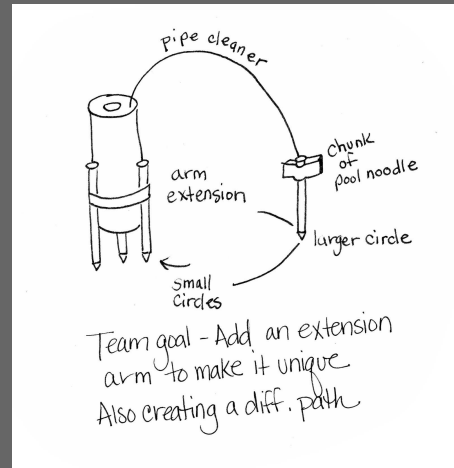 pipe cleaner
chunk
of
pool noodle
arm
extension
larger circle
small
circles
Team goal - Add an extension
arm to make it unique
Also creating a diff. path